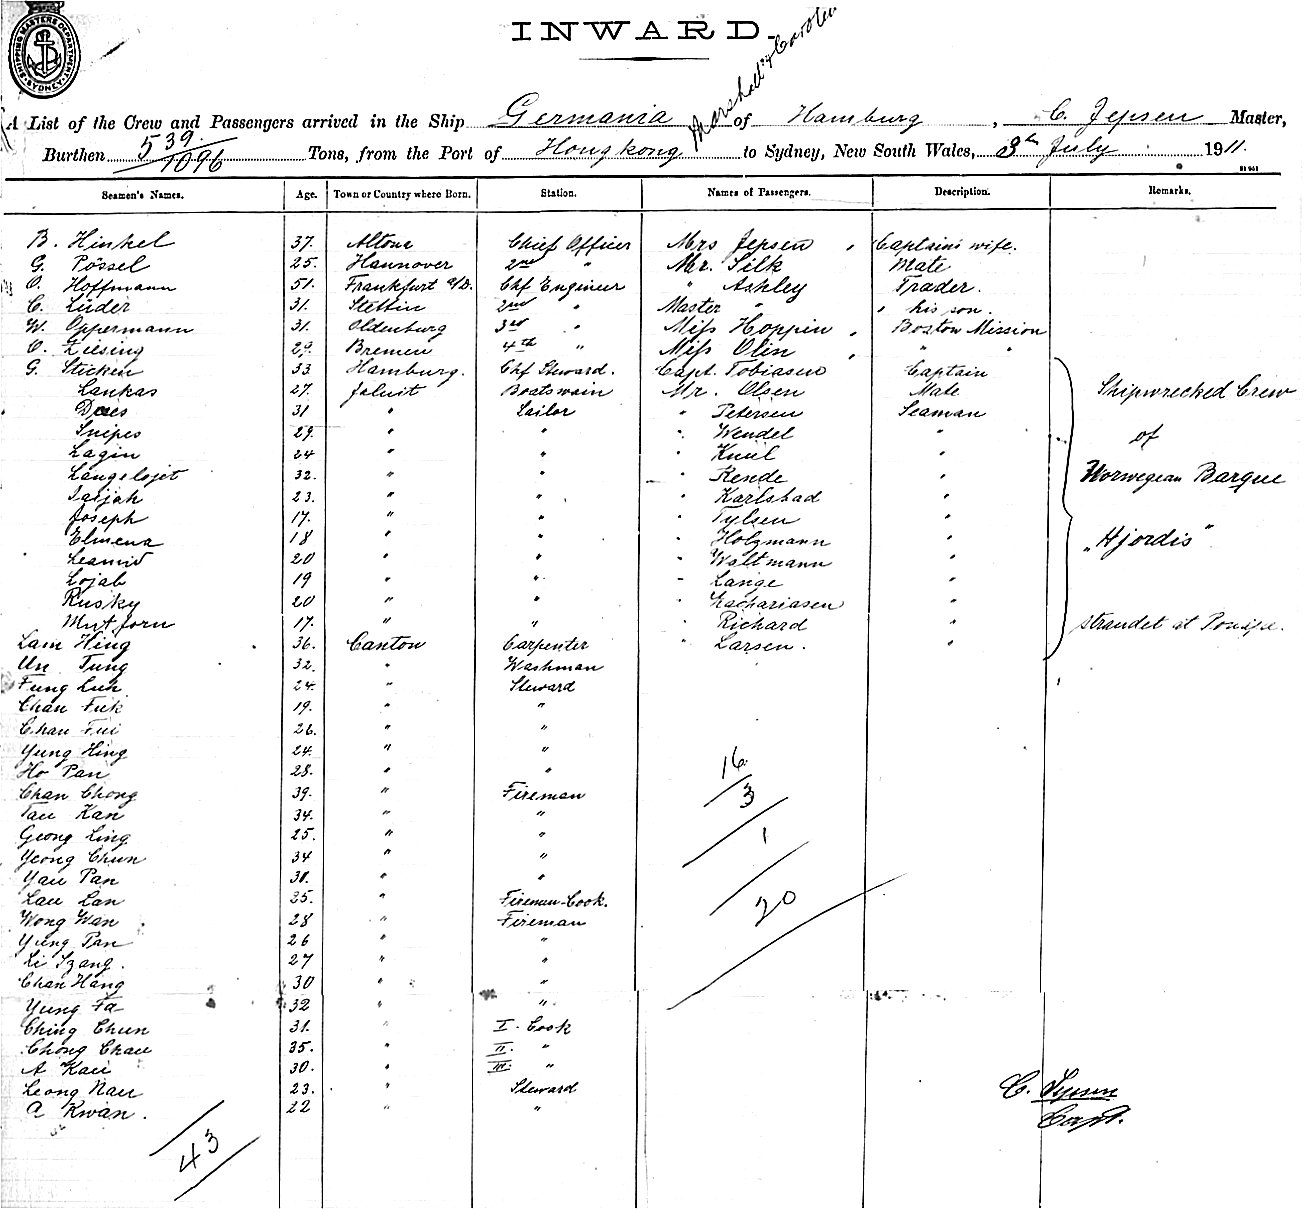 SHIPPING MASTERS DEPARTMENT SYDNEY
INWARD.
Marshall's & Caroline
A List of the Crew and Passengers arrived in the Ship Germania of Hamburg, C. Jepsen Master,
Burthen 539/1096 Tons, from the Port of Hongkong to Sydney, New South Wales, 3th July 1911.
Seamen's Names. Age. Town or Country where Born. Station. Names of Passengers. Description. Remarks.
B. Hinkel 37. Altona Chief Officer Mrs Jepsen, Captain's wife.
G. Pössel 25. Hannover 2nd " Mr. Silk Mate
O. Hoffmann 51. Frankfurt a/O. Chf Engineer " Ashley Trader.
C. Lüder 31. Stettin 2nd " Master " , his son.
W. Oppermann 31. Oldenburg 3rd " Miss Hoppin , Boston Mission
O. Zilsing 29. Bremen 4th " Miss Olin , " "
G. Sticken 33. Hamburg. Chf Steward. Capt. Tobiasen Captain
Lankas 27. Jaluit Boatswain Mr. Olsen Mate Shipwrecked Crew
Daes 31 " Sailor " Petersen Seaman
Snipes 29. " " " Wendel " of
Lagin 24 " " " Knul "
Langelojet 32. " " " Rende " Norwegian Barque
23. " " " Karlsbad "
Joseph 17. " " " Tylsen "
Elmena 18 " " " Holzmann " "Hjordis"
20 " " " Waltmann "
Lojab 19 " " " Lange "
Rusky 20 " " " Zachariasen "
17. " " " Richard " strandet at Ponape.
Lam Hing 36. Canton Carpenter " Larsen. "
Un Tung 32. " Washman
Fung Luk 24. " Steward
Chau Fuk 19. " "
Chau Fui 26. " "
Yung Hing 24. " "
Ho Pan 28. " " 16
Chan Chong 39. " Fireman 3
Tau Kan 34. " "
Geong Ling 25. " " 1
Yeong Chun 34 " "
Yau Pan 30. " "
Lau Lan 25. " Firemen-Cook. 20
Wong Wan 28 " Fireman
Yung Pan 26 " "
Li Tzang. 27 " "
Chan Hang 30 " "
Yung Fa 32 " "
Ching Chun 31. " I. Cook
Chong Chau 35. " II. "
A Kau 30. " III. "
Leong Nau 23. " Steward C. Jepsen
A Kwan. 22 " " Capt.
43